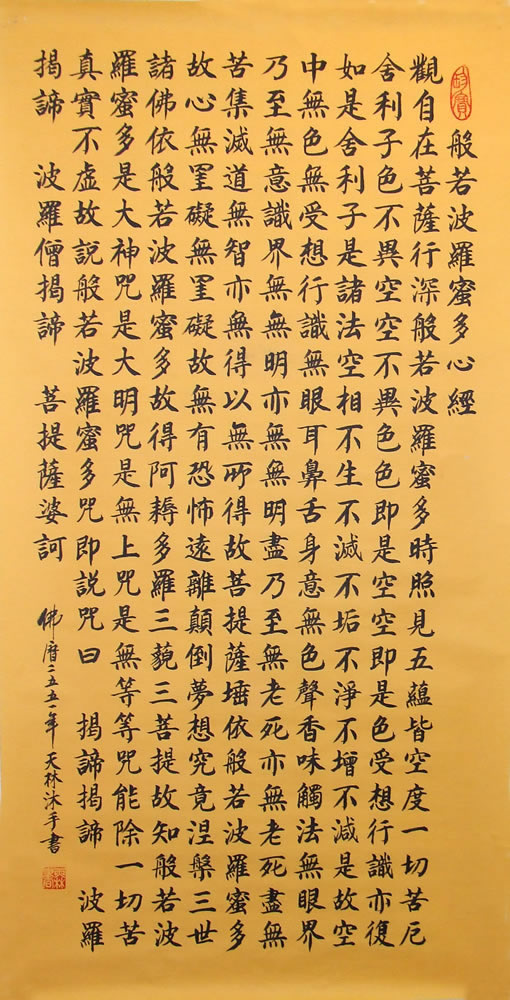 般若波羅蜜多心經
觀自在菩薩行深般若波羅蜜多時照見五蘊皆空度一切苦厄
舍利子色不異空空不異色色即是空空即是色受想行識亦復
如是舍利子是諸法空相不生不滅不垢不淨不增不減是故空
中無色無受想行識無眼耳鼻舌身意無色聲香味觸法無眼界
乃至無意識界無無明亦無無明盡乃至無老死亦無老死盡無
苦集滅道無智亦無得以無所得故菩提薩埵依般若波羅蜜多
故心無罣礙無罣礙故無有恐怖遠離顛倒夢想究竟涅槃三世
諸佛依般若波羅蜜多故得阿耨多羅三藐三菩提故知般若波
羅蜜多是大神咒是大明咒是無上咒是無等等咒能除一切苦
真實不虛故說般若波羅蜜多咒即說咒曰 揭諦揭諦 波羅
揭諦 波羅僧揭諦 菩提薩婆訶
佛曆二五五一年天林沐手書